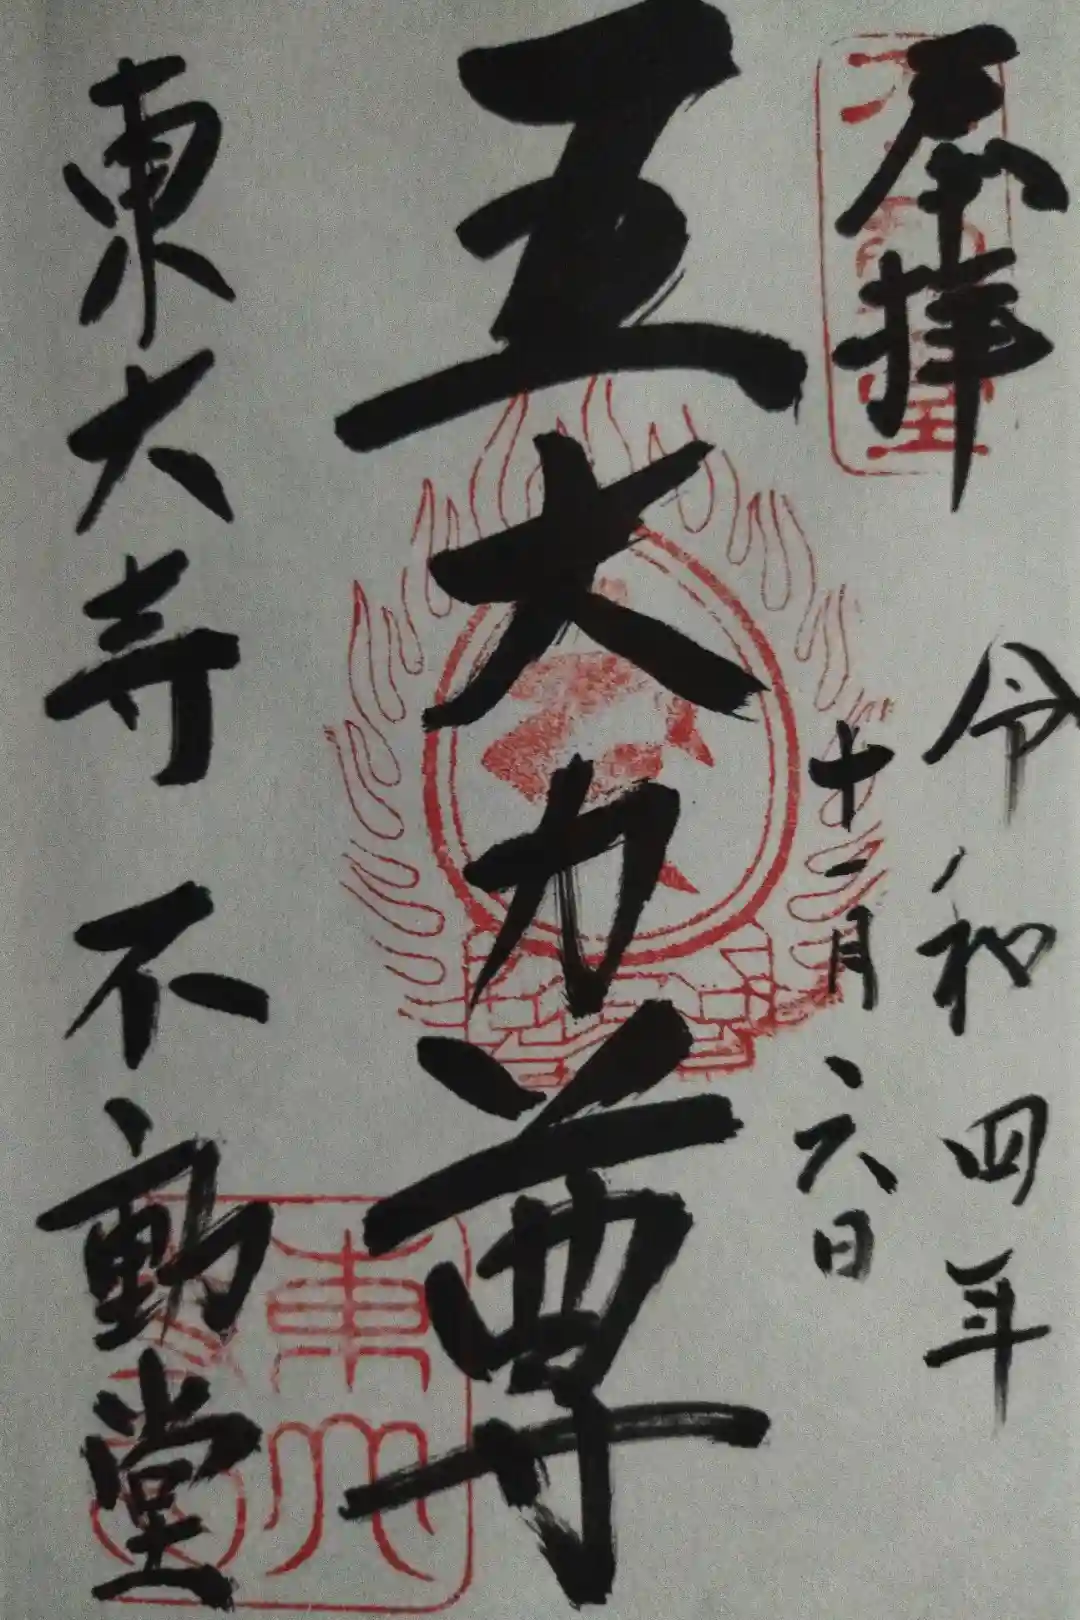 奉拝
令和四年
十二月六日
五大力尊
東大寺 不動堂